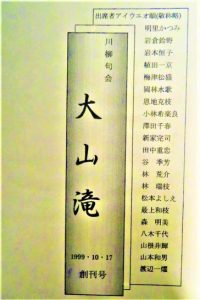 出席者アイウエオ順(敬称略)
明里かつみ
岩倉鈴野
岩本恒子
植田一京
梅津松猫
園林水歌
恩地克枝
小林希楽良
澤田千春
新家完司
田中重忠
谷 季芳
林 荒介
林 瑞枝
松本よしえ
最上和枝
森 明美
八木千代
山根井輝
山本和男
渡辺一雄
川柳句会
大山滝
1999・10・17
創刊号